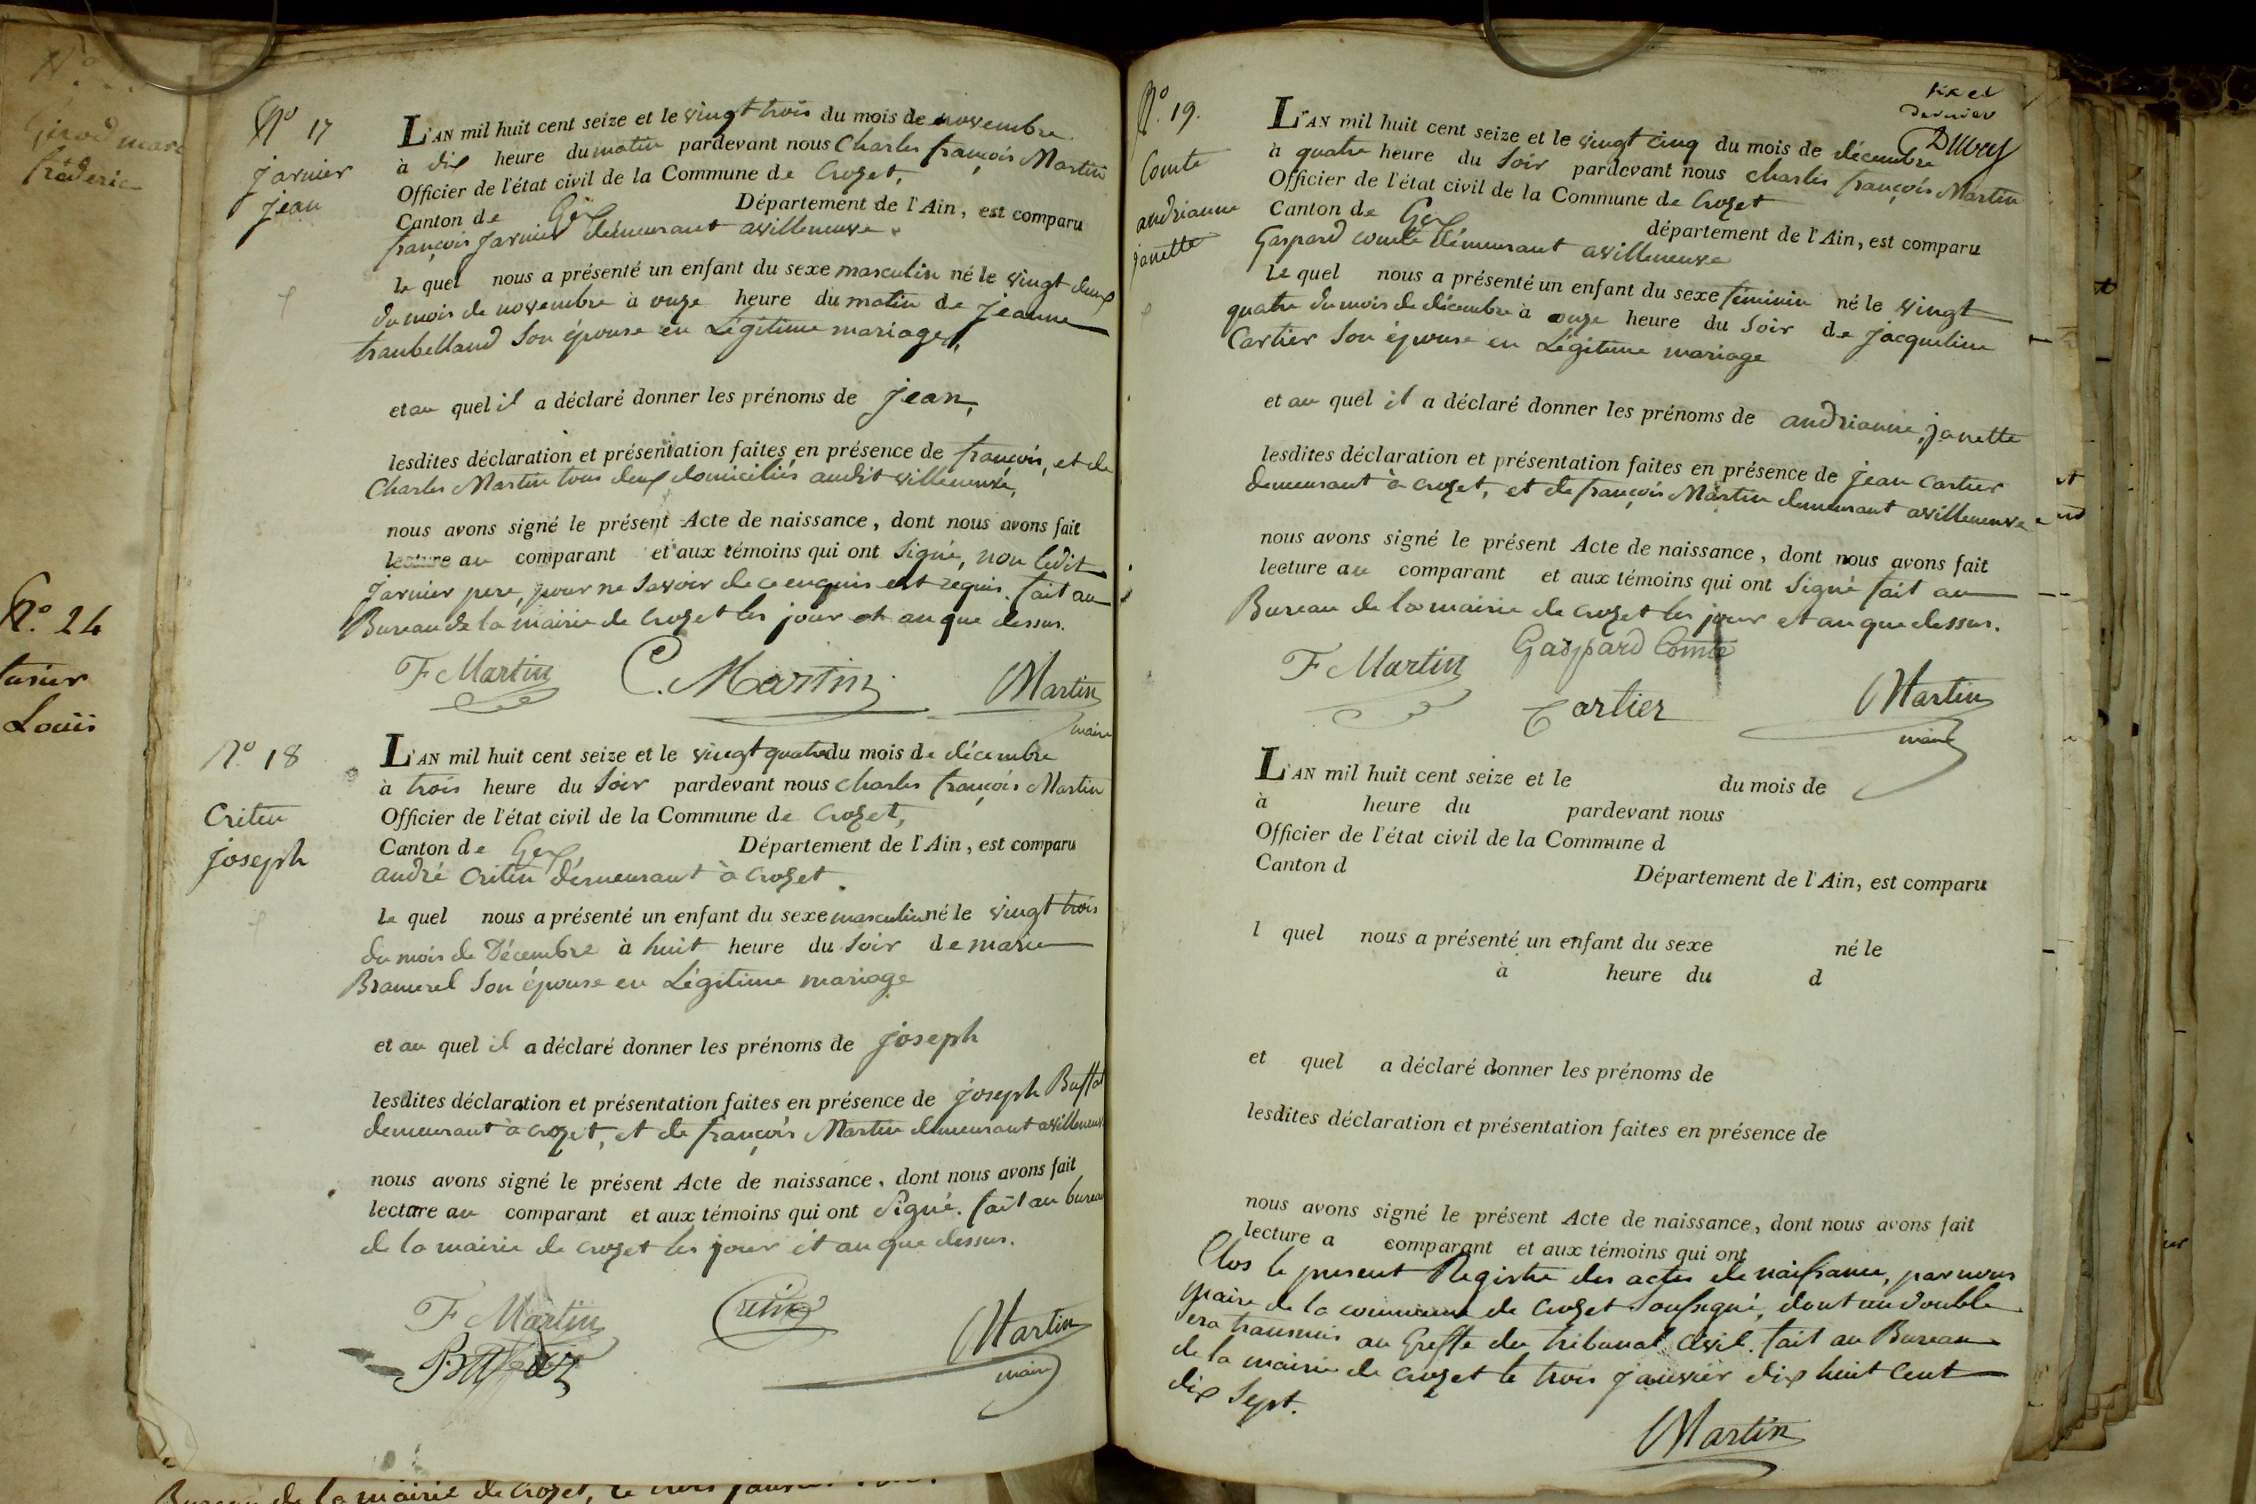 Girod marc
frédéric
N.º 24
Louis
Nº 17
Jarnier
Jean
L'AN mil huit cent seize et le vingt trois du mois de novembre
à dix heure du matin pardevant nous Charles françois Martin
Officier de l'état civil de la Commune de Crozet,
Canton de Gex Département de l'Ain, est comparu
françois Jarnier demeurant avilleneuve.
le quel nous a présenté un enfant du sexe masculin né le vingt deux
du mois de novembre à onze heure du matin de Jeanne
son épouse en Légitime mariage,
et au quel il a déclaré donner les prénoms de Jean,
lesdites déclaration et présentation faites en présence de françois, et de
Charles Martin tous deux domiciliés audit villeneuve,
nous avons signé le présent Acte de naissance, dont nous avons fait
lecture au comparant et aux témoins qui ont Signé, non ledit
Jarnier pere, pour ne Savoir de ce enquis et requis. fait au
Bureau de la mairie de Crozet les jour et an que dessus.
F Martin C. Martin Martin
maire
Nº 18
Critin
joseph
L'AN mil huit cent seize et le vingt quatre du mois de décembre
à trois heure du Soir pardevant nous charles françois Martin
Officier de l'état civil de la Commune de Crozet,
Canton de Gex Département de l'Ain, est comparu
andré Critin demeurant à Crozet.
le quel nous a présenté un enfant du sexe masculin né le vingt trois
du mois de Décembre à huit heure du Soir de marie
son épouse en Légitime mariage
et au quel il a déclaré donner les prénoms de joseph
lesdites déclaration et présentation faites en présence de joseph
demeurant à crozet, et de françois Martin demeurant avilleneuve
nous avons signé le présent Acte de naissance, dont nous avons fait
lecture au comparant et aux témoins qui ont Signé. fait au bureau
de la mairie de crozet les jour et an que dessus.
F Martin Critin Martin
maire
Bureau de la mairie de Crozet, le trois
N.º 19.
Comte
andrianne
janette
dernier
L'AN mil huit cent seize et le vingt cinq du mois de décembre
à quatre heure du Soir pardevant nous charles françois Martin
Officier de l'état civil de la Commune de Crozet
Canton de Gex département de l'Ain, est comparu
Gaspard comte démeurant avilleneuve
Le quel nous a présenté un enfant du sexe féminin né le vingt
quatre du mois de décembre à onze heure du Soir de jacqueline
Cartier Son épouse en Légitime mariage
et au quel il a déclaré donner les prénoms de andrianne, janette
lesdites déclaration et présentation faites en présence de jean cartier
demeurant à crozet, et de françois Martin demeurant avilleneuve
nous avons signé le présent Acte de naissance, dont nous avons fait
lecture au comparant et aux témoins qui ont Signé fait au
Bureau de la mairie de crozet les jour et an que dessus.
F Martin Gaspard Comte
Cartier Martin
maire
L'AN mil huit cent seize et le du mois de
à heure du pardevant nous
Officier de l'état civil de la Commune d
Canton d Département de l'Ain, est comparu
l quel nous a présenté un enfant du sexe né le
à heure du d
et quel a déclaré donner les prénoms de
lesdites déclaration et présentation faites en présence de
nous avons signé le présent Acte de naissance, dont nous avons fait
lecture a comparant et aux témoins qui ont
Clos le present Registre des actes de naissance, par nous
maire de la commune de crozet soussigné, dont un double
sera transmis au Greffe du tribunal civil. fait au Bureau
de la mairie de crozet le trois janvier dix huit Cent
dix Sept.
Martin